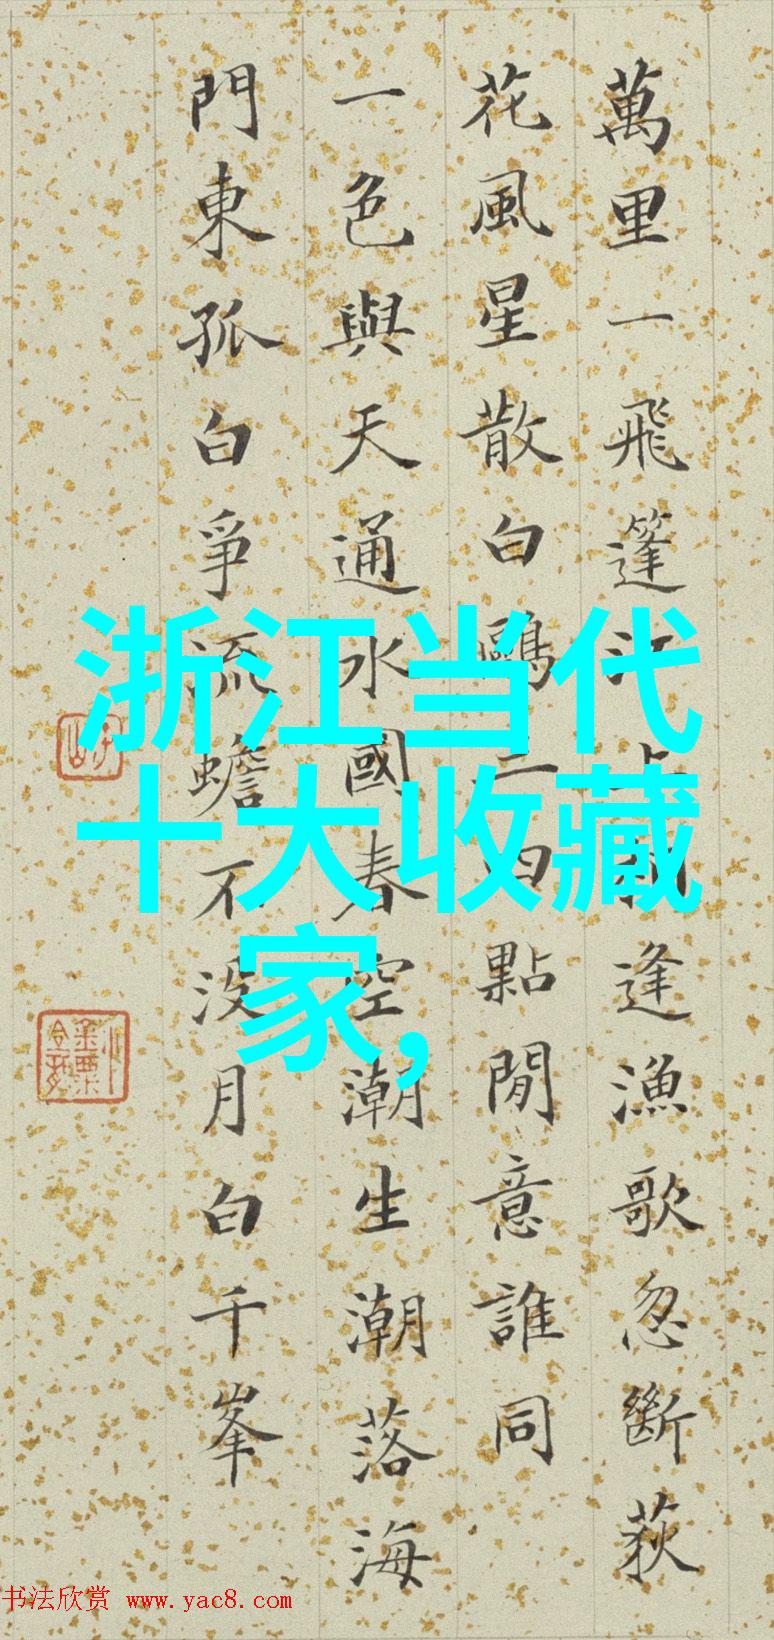 萬里一飛篷江上逢漁歌忽斷荻
花風星散白鷗三四點閒意誰同
一色與天通水國春空潮生潮落海
門東孤白爭流蟾不沒月白千峯
浙江当代
十大收藏
家,
书法欣赏 www.yac8.com